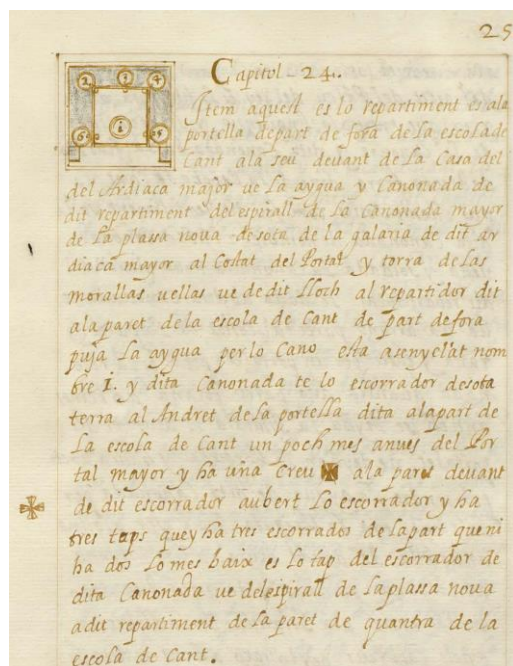 25
Capitol 24.
2 3 4
6 1 5
Item aquest es lo repartiment es ala
portella de part de fora de la escola de
Cant ala seu devant de la Casa del
del Ardiaca major ve la aygua y Canonada de
dit repartiment del espirall de la Canonada mayor
de la plassa nova desota de la galaria de dit ar
diaca mayor al Costat del Portal y torra de las
morallas vellas ve de dit lloch al repartidor dit
ala paret de la escola de Cant de part defora
puja la aygua per lo Cano esta asenyelat nom
bre 1. y dita Canonada te lo escorrador desota
terra al Andret de la portella dita ala part de
la escola de Cant un poch mes anves del Por
tal mayor y ha una Creu ✠ ala paret devant
de dit escorrador aubert lo escorrador y ha
tres taps que y ha tres escorrados de la part que ni
ha dos lo mes baix es lo tap del escorrador de
dita Canonada ve del espirall de la plassa nova
a dit repartiment de la paret de quantra de la
escola de Cant.